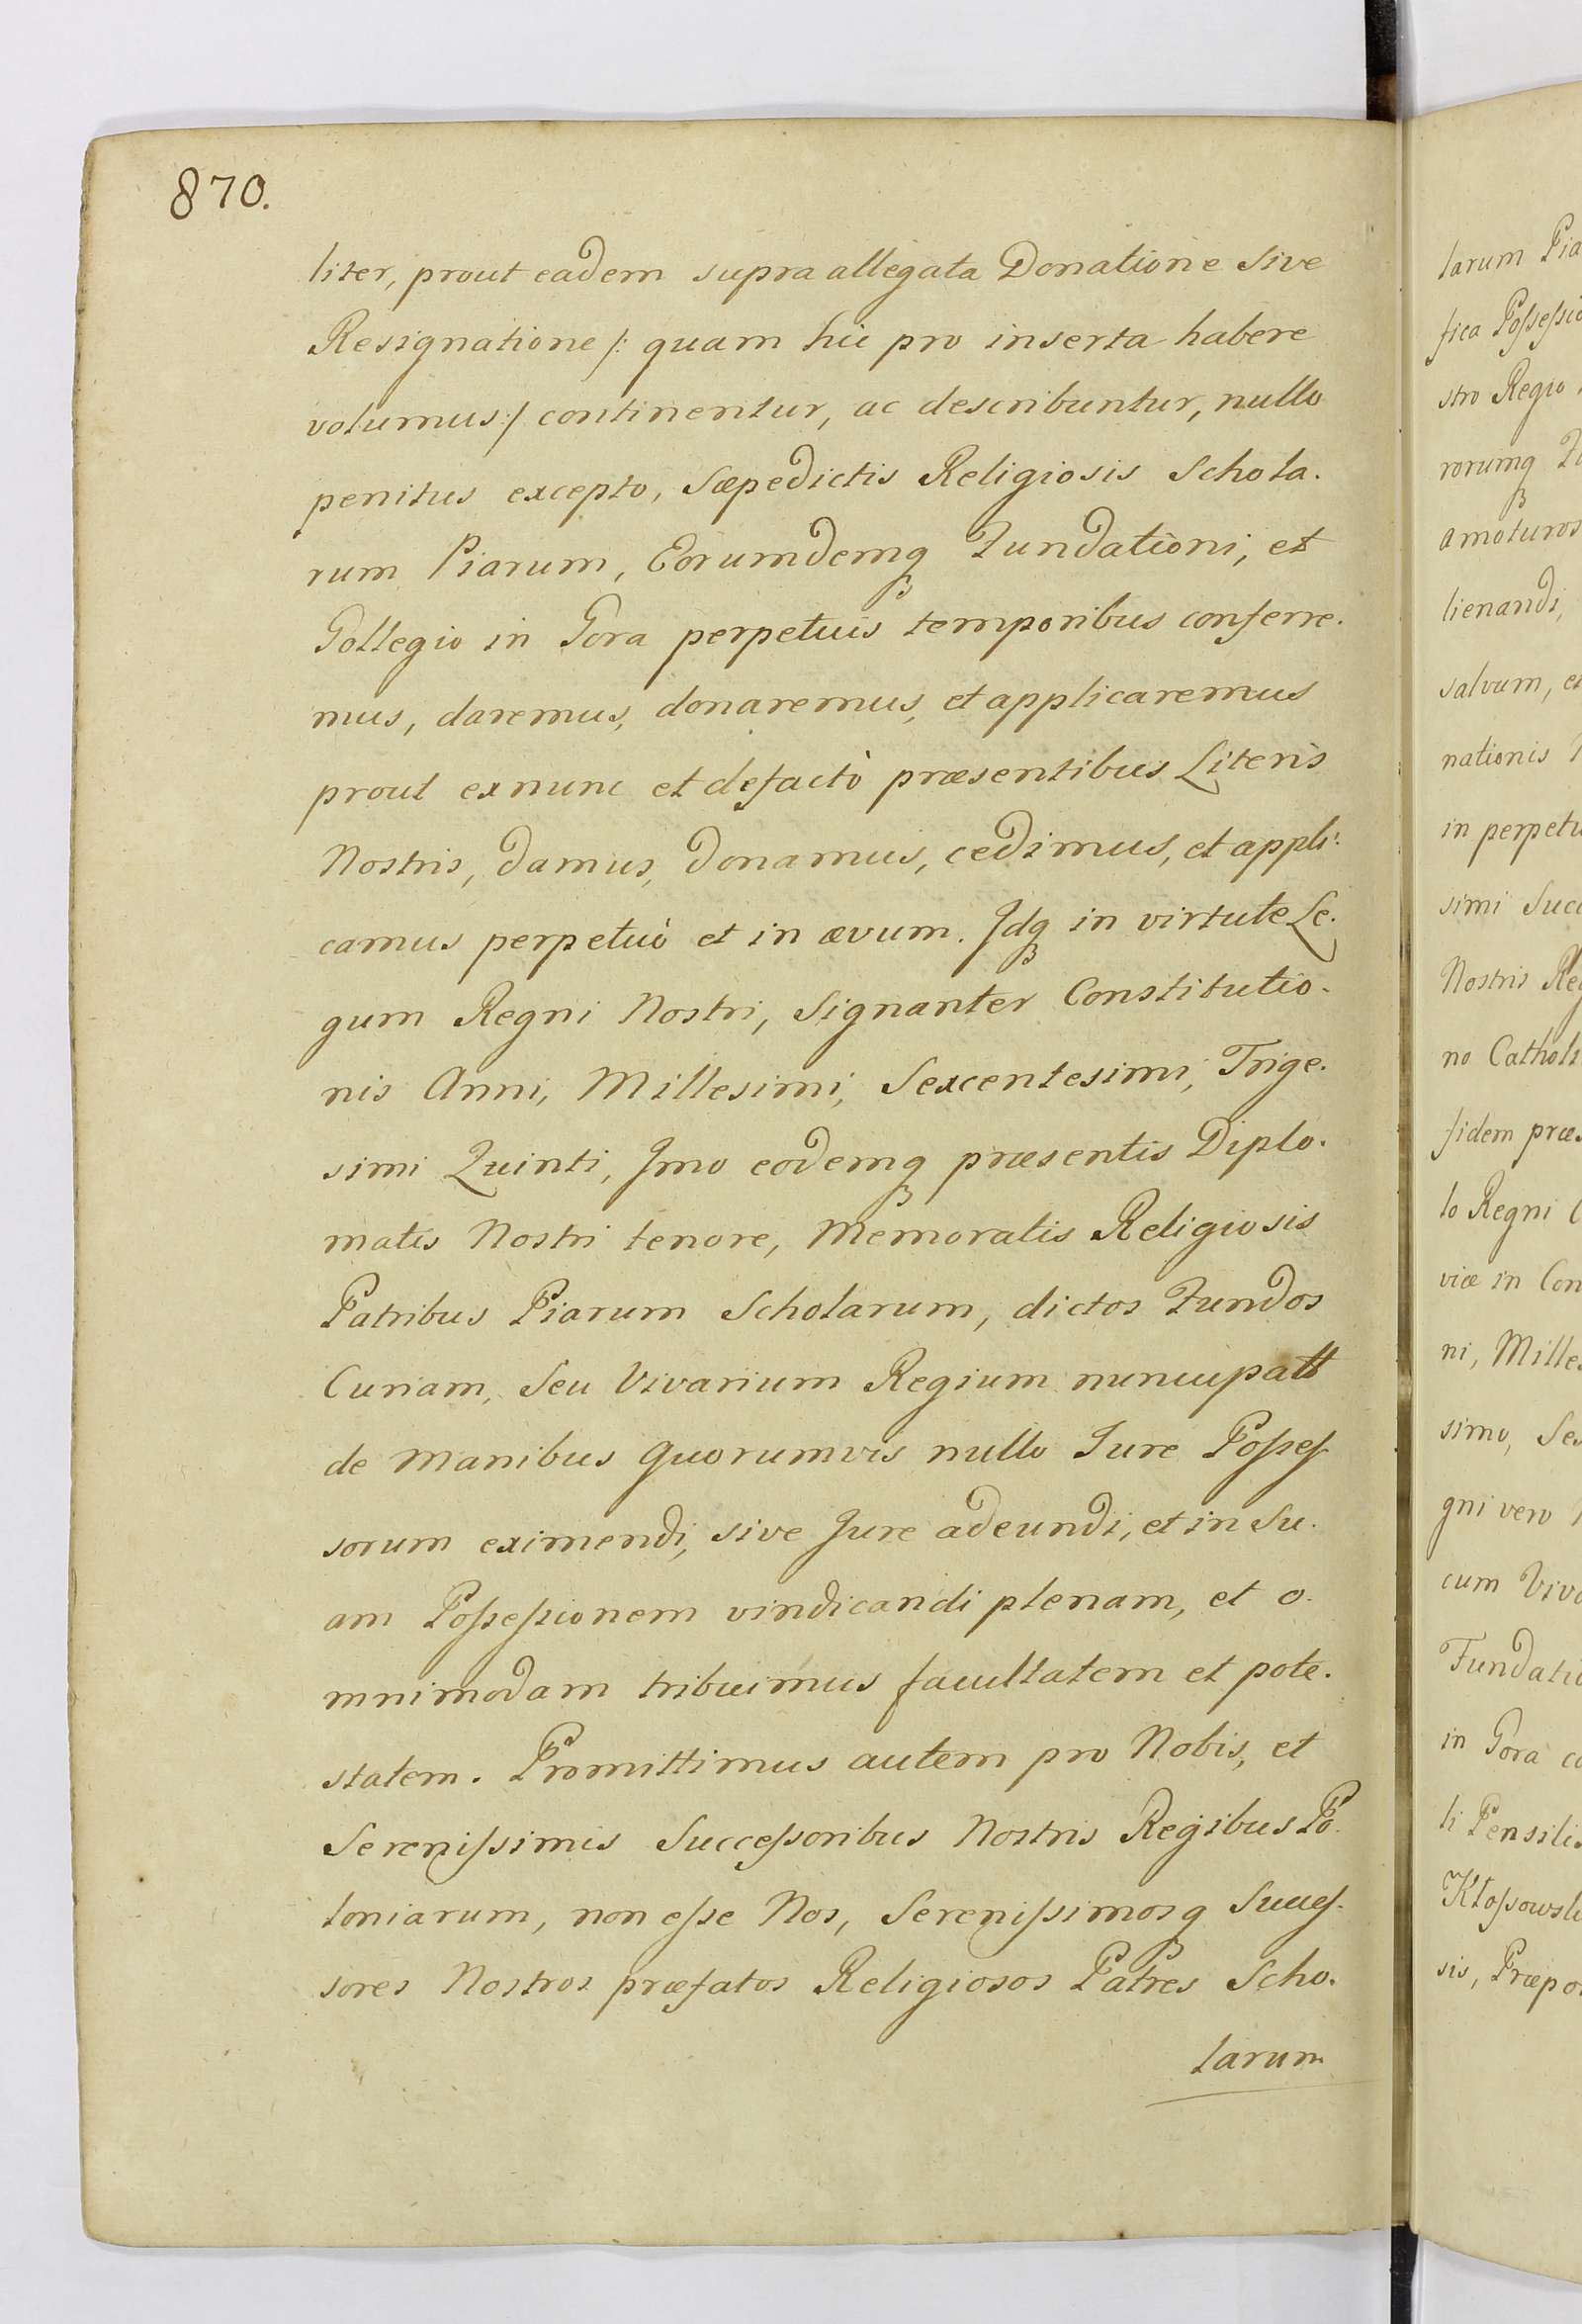 870.
liter, prout eadem supra allegata Donatione Sive
Resignatione /: quam hic pro inserta habere
volumus :/ continentur, ac describuntur, nullo
penitus excepto, Sæpedictis Religiosis Schola.
rum Piarum, Eorumdemqꝫ Fundationi, et
Collegio in Gora perpetuis temporibus conferre.
mus, daremus, donaremus, et applicaremus
prout ex nunc et defactò præsentibus Literis
Nostris, damus, donamus, cedimus, et appli.
camus perpetuò et in ævum. Jdqꝫ in virtute Le.
gum Regni Nostri, Signanter Constitutio.
nis Anni, Millesimi, Sexcentesimi, Trige.
simi Quinti, Jmo eodemqꝫ præsentis Diplo.
matis Nostri tenore, Memoratis Religiosis
Patribus Piarum Scholarum, dictos Fundos
Curiam, Seu Vivarium Regium nuncupatt
de Manibus quorumvis nullo Jure Poſses
sorum eximendi, sive Jure adeundi, et in Su.
am Poſseſsionem vindicandi plenam, et o.
mnimodam tribuimus facultatem et pote.
statem. Promittimus autem pro Nobis, et
Sereniſsimis Succeſsoribus Nostris Regibus Po.
loniarum, non eſse Nos, Sereniſsimosqꝫ Succeſ.
sores Nostros præfatos Religiosos Patres Scho.
larum
larum Pia
fica Poſseſsio
stro Regio
rorumqꝫ
amoturos
lienandi,
salvum, et
nationis
in perpetu
simi Succ
Nostris Reg
no Catholi
fidem præs
lo Regni C
viæ in Con
ni, Milles
simo, Sex
gni vero
cum Viva
Fundatio
in Gora co
li Pensilis
Kłoſsowsk
sis, Præpos